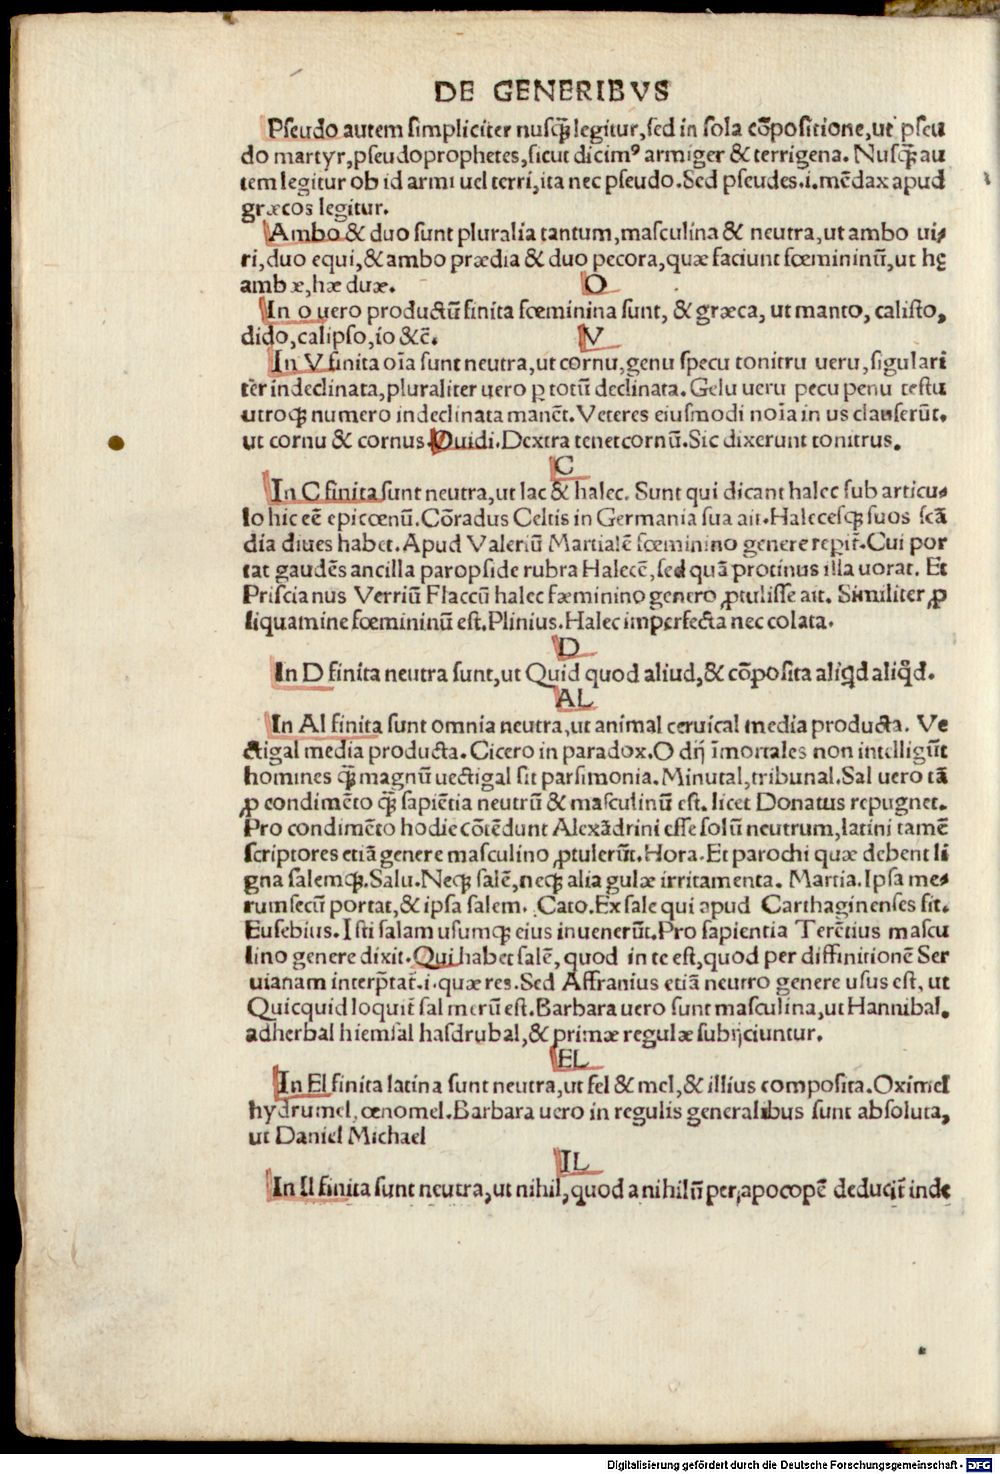 DE GENERIBVS
Pſeudo autem ſimpliciter nuſq̃ legitur, ſed in ſola cõpoſitione, ut pſeu
do martyr, pſeudoprophetes, ſicut dicimꝰ armiger & terrigena. Nuſq̃ au
tem legitur ob id armi uel terri, ita nec pſeudo. Sed pſeudes .i. mẽdax apud
græcos legitur.
Ambo & duo ſunt pluralia tantum, maſculina & neutra, ut ambo ui⸗
ri, duo equi, & ambo prædia & duo pecora, quæ faciunt fœmininũ, ut hę
ambæ, hæ duæ.
O
In o uero productũ finita fœminina ſunt, & græca, ut manto, caliſto,
dido, calipſo, io &c̃.
V
In V finita oĩa ſunt neutra, ut cornu, genu ſpecu tonitru ueru, ſigulari
ter indeclinata, pluraliter uero p totũ declinata. Gelu ueru pecu penu teſtu
utroq; numero indeclinata manẽt. Veteres eiuſmodi noĩa in us clauſerũt.
ut cornu & cornus. Ouidi. Dextra tenet cornũ. Sic dixerunt tonitrus.
C
In C finita ſunt neutra, ut lac & halec. Sunt qui dicant halec ſub articu⸗
lo hic eẽ epicœnũ. Cõradus Celtis in Germania ſua ait. Haleceſq; ſuos ſcã
dia diues habet. Apud Valeriũ Martialẽ fœminino genere repit̃. Cui por
tat gaudẽs ancilla paropſide rubra Halecẽ, ſed quã protinus illa uorat. Et
Priſcianus Verriũ Flaccũ halec fæminino genero ꝓtuliſſe ait. Similiter ꝓ
liquamine fœmininũ eſt. Plinius. Halec imperfecta nec colata.
D
In D finita neutra ſunt, ut Quid quod aliud, & cõpoſita aliqd aliq̃d.
AL
In Al finita ſunt omnia neutra, ut animal ceruical media producta. Ve
ctigal media producta. Cicero in paradox. O dij ĩmortales non intelligũt
homines q̃ magnũ uectigal ſit parſimonia. Minutal, tribunal. Sal uero tã
ꝓ condimẽto q̃ ſapiẽtia neutrũ & maſculinũ eſt. licet Donatus repugnet.
Pro condimẽto hodie cõtẽdunt Alexãdrini eſſe ſolũ neutrum, latini tamẽ
ſcriptores etiã genere maſculino ꝓtulerũt. Hora. Et parochi quæ debent li
gna ſalemq;. Salu. Neq; ſalẽ, neq; alia gulæ irritamenta. Martia. Ipſa me⸗
rum ſecũ portat, & ipſa ſalem. Cato. Ex ſale qui apud Carthaginenſes ſit.
Euſebius. Iſti ſalam uſumq; eius inuenerũt. Pro ſapientia Terẽtius maſcu
lino genere dixit. Qui habet ſalẽ, quod in te eſt, quod per diffinitionẽ Ser
uianam interp̃tat̃ .i. quæ res. Sed Affranius etiã neutro genere uſus eſt, ut
Quicquid loquit̃ ſal merũ eſt. Barbara uero ſunt maſculina, ut Hannibal.
adherbal hiemſal haſdrubal, & primæ regulæ ſubijciuntur.
EL
In El finita latina ſunt neutra, ut fel & mel, & illius compoſita. Oximel
hydrumel, œnomel. Barbara uero in regulis generalibus ſunt abſoluta,
ut Daniel Michael
IL
In Il finita ſunt neutra, ut nihil, quod a nihilũ per apocopẽ deducit̃ inde
Digitalisierung gefördert durch die Deutsche Forschungsgemeinschaft - DFG